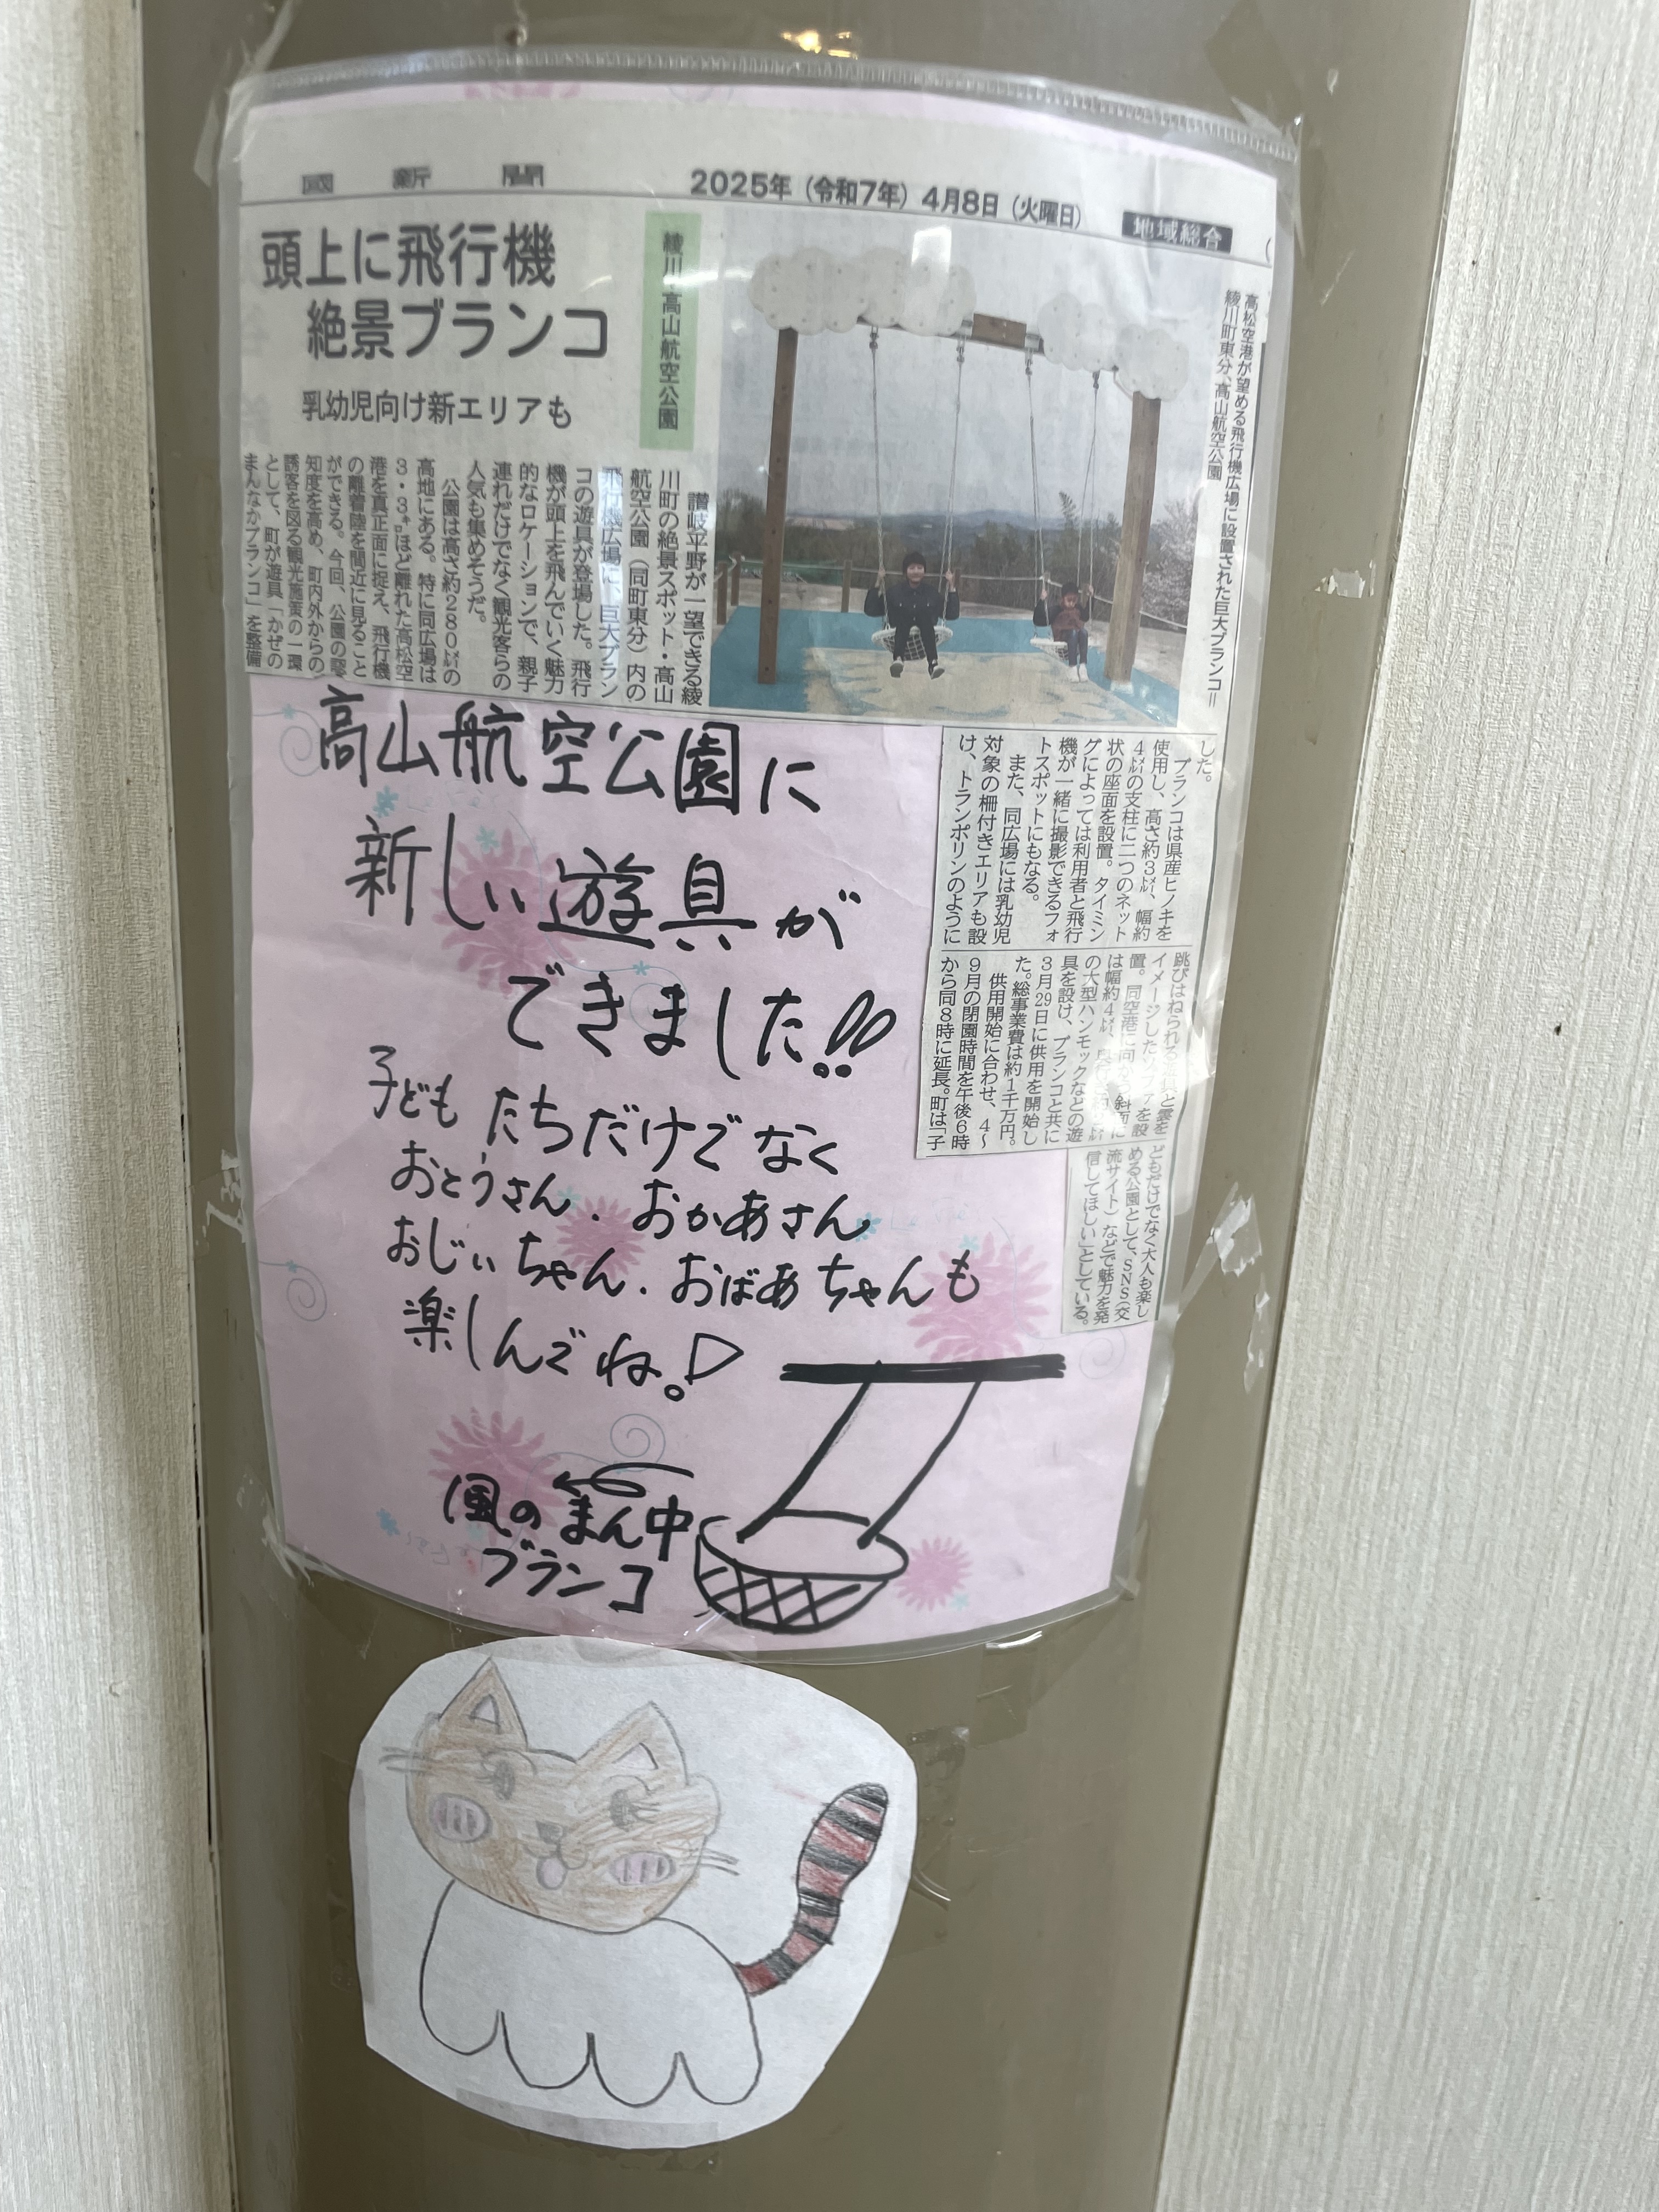 國 新 聞
2025年（令和7年）4月8日（火曜日）
地域総合
頭上に飛行機
絶景ブランコ
乳幼児向け新エリアも
綾川・高山航空公園
高松空港が望める飛行機広場に設置された巨大ブランコ＝
綾川町東分、高山航空公園
讃岐平野が一望できる綾
川町の絶景スポット・高山
航空公園（同町東分）内の
飛行機広場に、巨大ブラン
コの遊具が登場した。飛行
機が頭上を飛んでいく魅力
的なロケーションで、親子
連れだけでなく観光客らの
人気も集めそうだ。
公園は高さ約280㍍の
高地にある。特に同広場は
3・3㌔ほど離れた高松空
港を真正面に捉え、飛行機
の離着陸を間近に見ること
ができる。今回、公園の認
知度を高め、町内外からの
誘客を図る観光施策の一環
として、町が遊具「かぜの
まんなかブランコ」を整備
した。
ブランコは県産ヒノキを
使用し、高さ約3㍍、幅約
4㍍の支柱に二つのネット
状の座面を設置。タイミン
グによっては利用者と飛行
機が一緒に撮影できるフォ
トスポットにもなる。
また、同広場には乳幼児
対象の柵付きエリアも設
け、トランポリンのように
跳びはねられる遊具と雲を
イメージしたソファを設
置。同空港に向かう斜面に
は幅約4㍍、
の大型ハンモックなどの遊
具を設け、ブランコと共に
3月29日に供用を開始し
た。総事業費は約1千万円。
供用開始に合わせ、4〜
9月の閉園時間を午後6時
から同8時に延長。町は「子
どもだけでなく大人も楽し
める公園として、SNS（交
流サイト）などで魅力を発
信してほしい」としている。
高山航空公園に
新しい遊具が
できました!!
子どもたちだけでなく
おとうさん．おかあさん
おじぃちゃん．おばあちゃんも
楽しんでね。
風のまん中
ブランコ